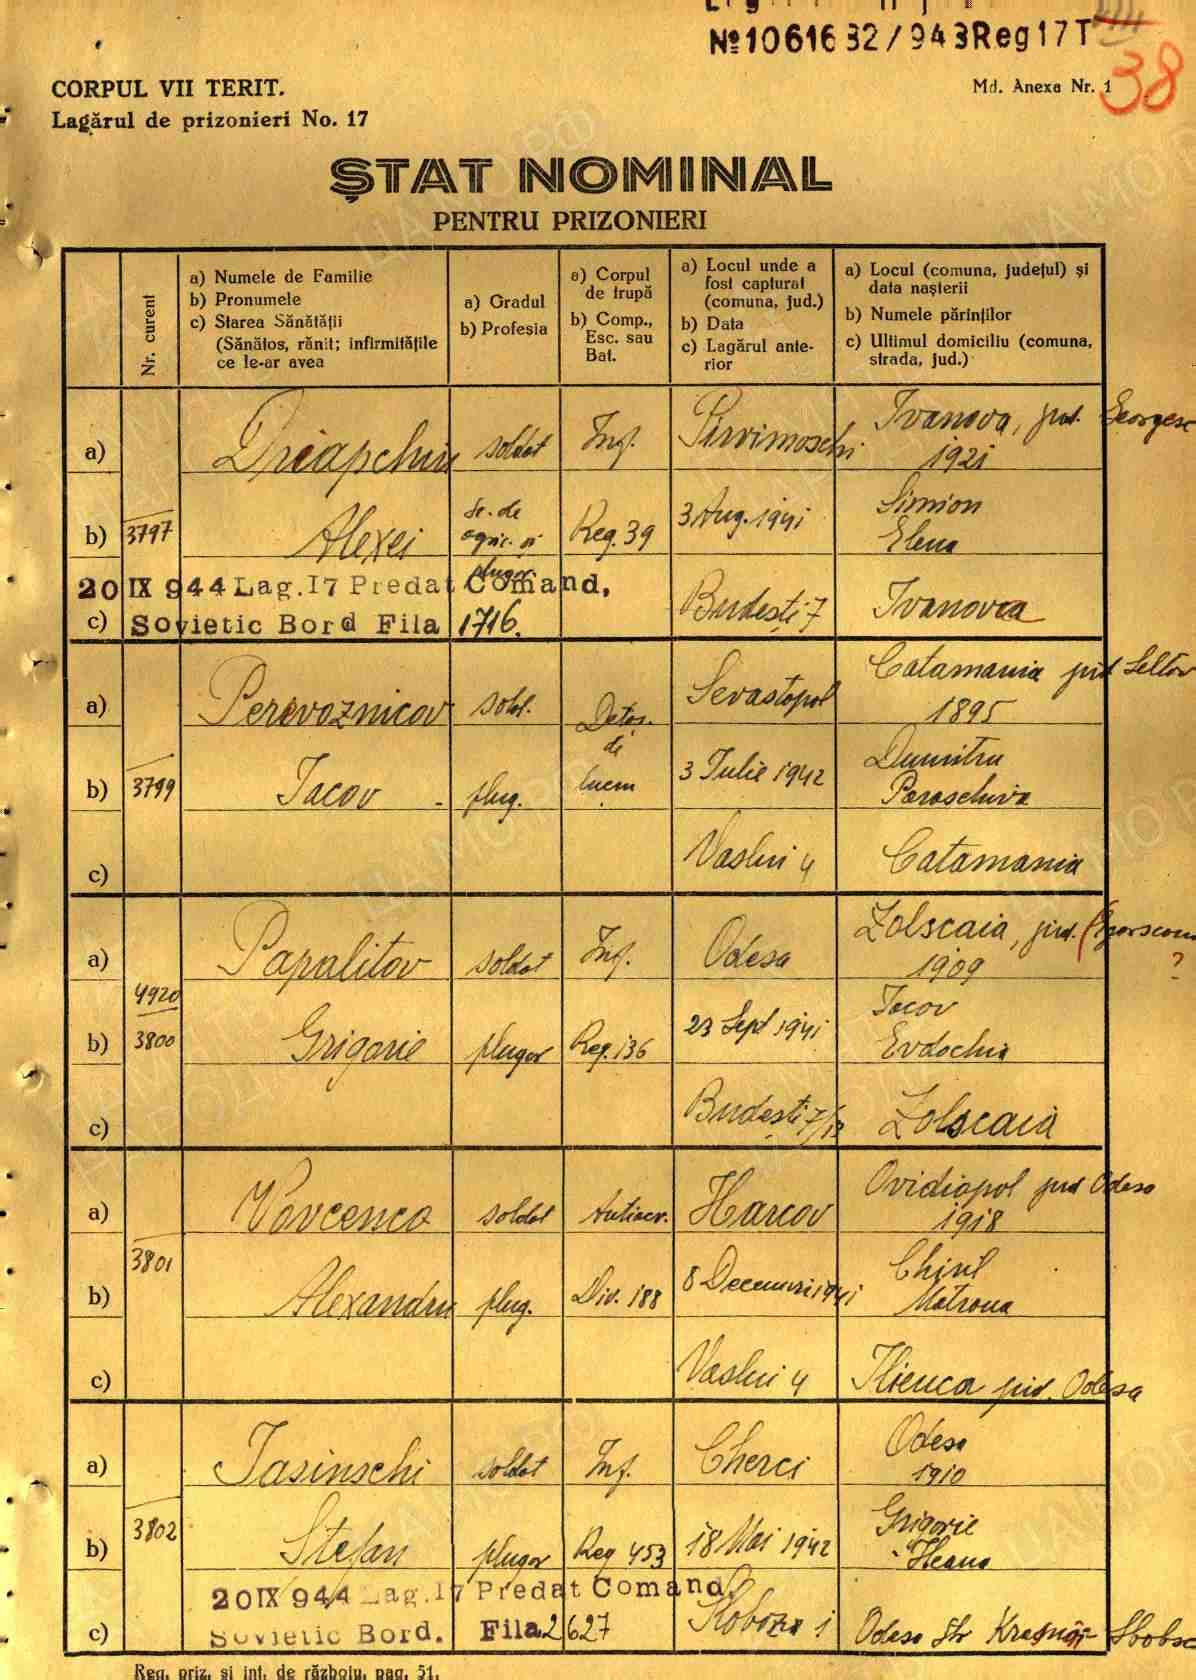 Nº1061632/943Reg17T
38
CORPUL VII TERIT.
Md. Anexa Nr. 1
Lagărul de prizonieri No. 17
ȘTAT NOMINAL
PENTRU PRIZONIERI
Nr. curent
a) Numele de Familie
b) Pronumele
c) Starea Sănătății
(Sănătos, rănit; infirmitățile
ce le-ar avea
a) Gradul
b) Profesia
a) Corpul
de trupă
b) Comp.,
Esc. sau
Bat.
a) Locul unde a
fost capturat
(comuna, jud.)
b) Data
c) Lagărul ante-
rior
a) Locul (comuna, județul) și
data nașterii
b) Numele părinților
c) Ultimul domiciliu (comuna,
strada, jud.)
a) soldat Inf. Ivanova, jud.
1921
b) 3797 Alexei Reg. 39 3 Aug. 1941 Simion
Elena
20 IX 944 Lag. 17 Predat Comand,
c) Sovietic Bord Fila 1716. Budești 7 Ivanovca
a) Perevoznicov sold. Detaș. Sevastopol Catamania jud
1895
de
b) 3799 Iacov plug. 3 Iulie 1942 Dumitru
Paraschiva
c) Vaslui 4 Catamania
a) Papalitov soldat Inf. Odesa Zolscaia, jud.
1909
?
4920
b) 3800 Grigorie plugar Reg. 136 23 Sept 1941 Iacov
Evdochia
c) Budești 7/13 Zolscaia
a) Vovcenco soldat Harcov Ovidiopol jud Odesa
1918
b) 3801 Alexandru plug. Div. 188 8 1941 Chiril
Matrona
c) Vaslui 4 Ilienca jud. Odesa
a) Iasinschi soldat Inf. Cherci Odesa
1910
b) 3802 Stefan plugar Reg 453 18 Mai 1942 Grigorie
Ileana
20 IX 944 Lag. 17 Predat Comand.
c) Sovietic Bord. Fila 2627 Slobozia 1 Odesa Str
Reg. priz. și int. de războiu, pag. 51.